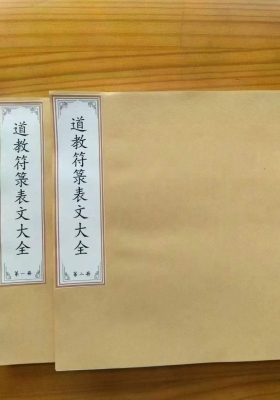 道教符箓表文大全
第一册
道教符箓表文大全
第二册